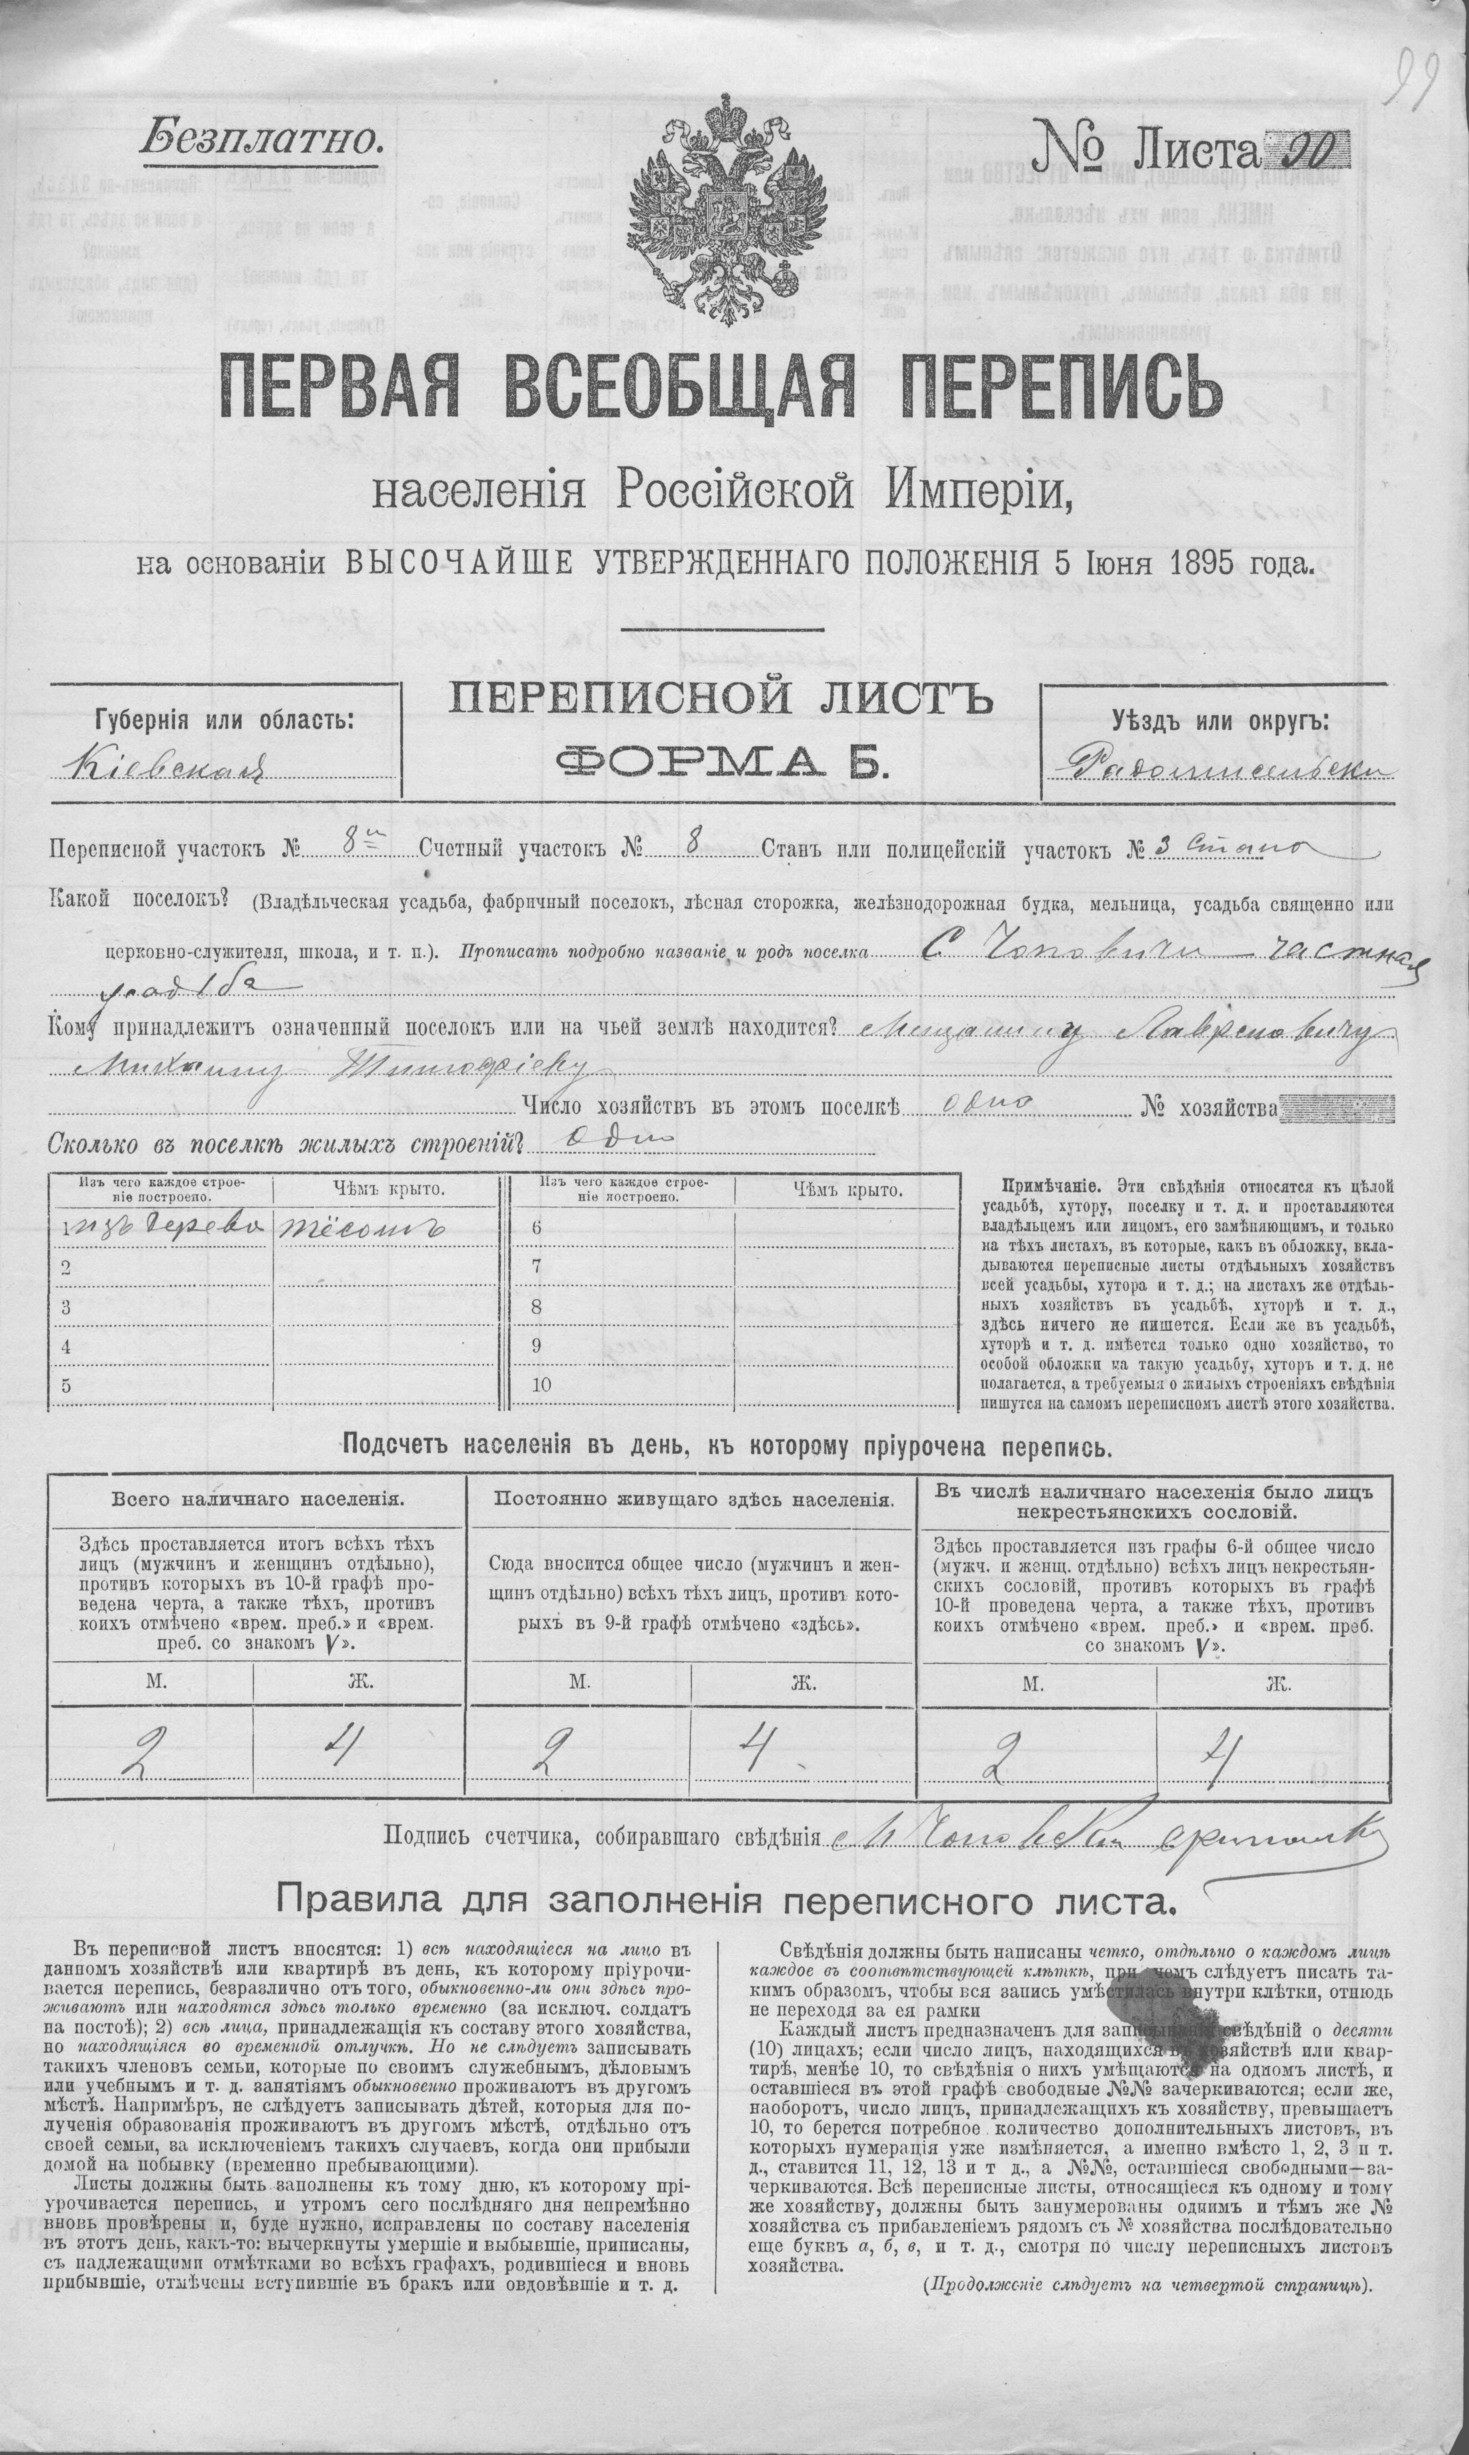 99
Безплатно.
№ Листа 90
ПЕРВАЯ ВСЕОБЩАЯ ПЕРЕПИСЬ
населенія Россійской Имперіи,
на основаніи ВЫСОЧАЙШЕ УТВЕРЖДЕННАГО ПОЛОЖЕНІЯ 5 Іюня 1895 года.
ПЕРЕПИСНОЙ ЛИСТЪ
ФОРМА Б.
Губернія или область:
Кіевская
Уѣздъ или округъ:
Радомисельски
Переписной участокъ № 8й Счетный участокъ № 8 Станъ или полицейскій участокъ № 3 стана
Какой поселокъ? (Владѣльческая усадьба, фабричный поселокъ, лѣсная сторожка, желѣзнодорожная будка, мельница, усадьба священно или
церковно-служителя, школа, и т. п.). Прописать подробно названіе и родъ поселка С Чоповичи частная
усадьба
Кому принадлежитъ означенный поселокъ или на чьей землѣ находится? Мищанину Лавреновичу
Михаилу Тимофіеву
Число хозяйствъ въ этомъ поселкѣ одно № хозяйства
Сколько въ поселкѣ жилыхъ строеній? одно
Изъ чего каждое строе-
ніе построено.
Чѣмъ крыто.
Изъ чего каждое строе-
ніе построено.
Чѣмъ крыто.
1 изъ дерева тёсомъ 6
2 7
3 8
4 9
5 10
Примѣчаніе. Эти свѣдѣнія относятся къ цѣлой
усадьбѣ, хутору, поселку и т. д. и проставляются
владѣльцемъ или лицомъ, его замѣняющимъ, и только
на тѣхъ листахъ, въ которые, какъ въ обложку, вкла-
дываются переписные листы отдѣльныхъ хозяйствъ
всей усадьбы, хутора и т. д.; на листахъ же отдѣль-
ныхъ хозяйствъ въ усадьбѣ, хуторѣ и т. д.,
здѣсь ничего не пишется. Если же въ усадьбѣ,
хуторѣ и т. д. имѣется только одно хозяйство, то
особой обложки на такую усадьбу, хуторъ и т. д. не
полагается, а требуемыя о жилыхъ строеніяхъ свѣдѣнія
пишутся на самомъ переписномъ листѣ этого хозяйства.
Подсчетъ населенія въ день, къ которому пріурочена перепись.
Всего наличнаго населенія.
Здѣсь проставляется итогъ всѣхъ тѣхъ
лицъ (мужчинъ и женщинъ отдѣльно),
противъ которыхъ въ 10-й графѣ про-
ведена черта, а также тѣхъ, противъ
коихъ отмѣчено «врем. преб.» и «врем.
преб. со знакомъ V».
Постоянно живущаго здѣсь населенія.
Сюда вносится общее число (мужчинъ и жен-
щинъ отдѣльно) всѣхъ тѣхъ лицъ, противъ кото-
рыхъ въ 9-й графѣ отмѣчено «здѣсь».
Въ числѣ наличнаго населенія было лицъ
некрестьянскихъ сословій.
Здѣсь проставляется изъ графы 6-й общее число
(мужч. и женщ. отдѣльно) всѣхъ лицъ некрестьян-
скихъ сословій, противъ которыхъ въ графѣ
10-й проведена черта, а также тѣхъ, противъ
коихъ отмѣчено «врем. преб.» и «врем. преб.
со знакомъ V».
М. Ж. М. Ж. М. Ж.
2 4 2 4 2 4
Подпись счетчика, собиравшаго свѣдѣнія
Правила для заполненія переписного листа.
Въ переписной листъ вносятся: 1) всѣ находящіеся на лицо въ
данномъ хозяйствѣ или квартирѣ въ день, къ которому пріурочи-
вается перепись, безразлично отъ того, обыкновенно-ли они здѣсь про-
живаютъ или находятся здѣсь только временно (за исключ. солдатъ
на постоѣ); 2) всѣ лица, принадлежащія къ составу этого хозяйства,
но находящіяся во временной отлучкѣ. Но не слѣдуетъ записывать
такихъ членовъ семьи, которые по своимъ служебнымъ, дѣловымъ
или учебнымъ и т. д. занятіямъ обыкновенно проживаютъ въ другомъ
мѣстѣ. Напримѣръ, не слѣдуетъ записывать дѣтей, которыя для по-
лученія образованія проживаютъ въ другомъ мѣстѣ, отдѣльно отъ
своей семьи, за исключеніемъ такихъ случаевъ, когда они прибыли
домой на побывку (временно пребывающими).
Листы должны быть заполнены къ тому дню, къ которому прі-
урочивается перепись, и утромъ сего послѣдняго дня непремѣнно
вновь провѣрены и, буде нужно, исправлены по составу населенія
въ этотъ день, какъ-то: вычеркнуты умершіе и выбывшіе, приписаны,
съ надлежащими отмѣтками во всѣхъ графахъ, родившіеся и вновь
прибывшіе, отмѣчены вступившіе въ бракъ или овдовѣвшіе и т. д.
Свѣдѣнія должны быть написаны четко, отдѣльно о каждомъ лицѣ
каждое въ соотвѣтствующей клѣткѣ, при чемъ слѣдуетъ писать та-
кимъ образомъ, чтобы вся запись умѣстилась внутри клѣтки, отнюдь
не переходя за ея рамки
Каждый листъ предназначенъ для записыванія свѣдѣній о десяти
(10) лицахъ; если число лицъ, находящихся въ хозяйствѣ или квар-
тирѣ, менѣе 10, то свѣдѣнія о нихъ умѣщаются на одномъ листѣ, и
оставшіеся въ этой графѣ свободные №№ зачеркиваются; если же,
наоборотъ, число лицъ, принадлежащихъ къ хозяйству, превышаетъ
10, то берется потребное количество дополнительныхъ листовъ, въ
которыхъ нумерація уже измѣняется, а именно вмѣсто 1, 2, 3 и т.
д., ставится 11, 12, 13 и т д., а №№, оставшіеся свободными—за-
черкиваются. Всѣ переписные листы, относящіеся къ одному и тому
же хозяйству, должны быть занумерованы однимъ и тѣмъ же №
хозяйства съ прибавленіемъ рядомъ съ № хозяйства послѣдовательно
еще буквъ а, б, в, и т. д., смотря по числу переписныхъ листовъ
хозяйства.
(Продолженіе слѣдуетъ на четвертой страницѣ).